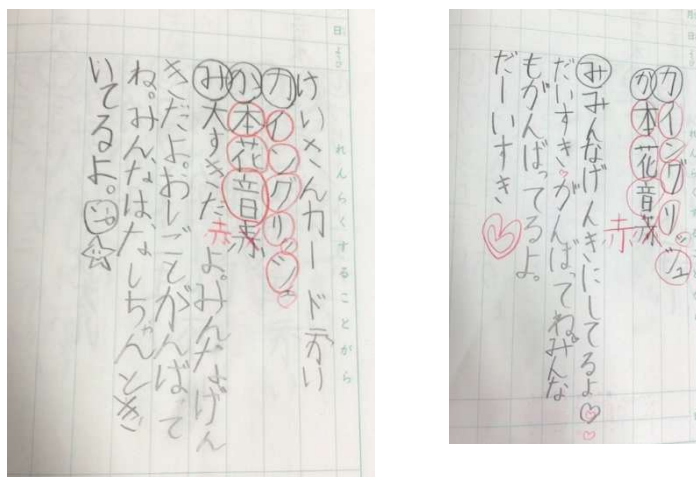 れんらくすることがら
けいさんカード
カイングリッシュ
か本花音赤
み大すきだよ。みんなげん
きだよ。おしごてがんばって
ね。みんなはなしちゃんとき
いてるよ。
カイングリッシュ
か本花音赤
みみんなげんきにしてるよ♡♡
だいすき♡がんばってね。みんな
もがんばってるよ。
だーいすき♡